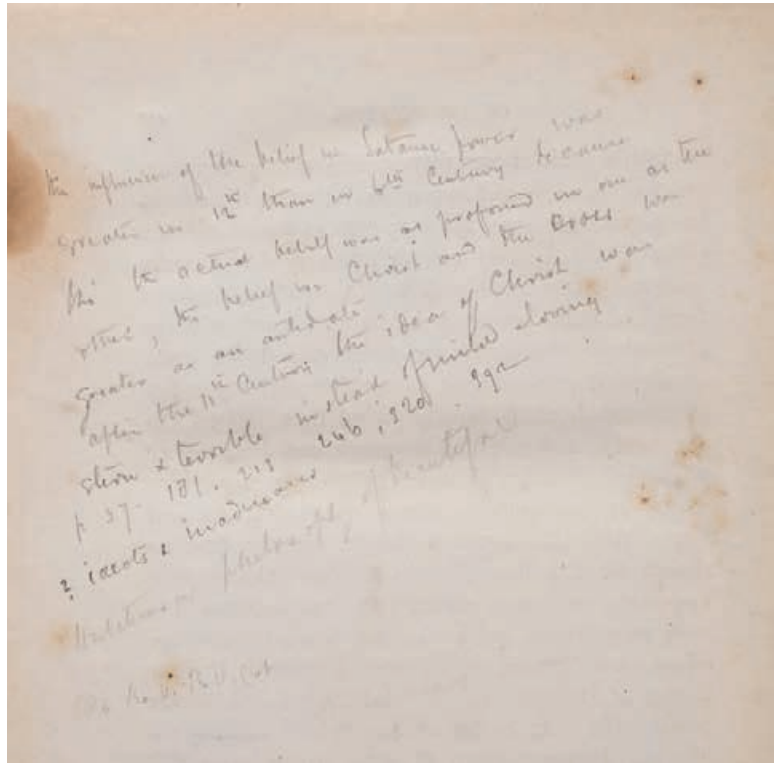 the influence of the belief in Satanic power was
greater in 12th than in 6th Century because
tho' the actual belief was as profound in one as the
other, the belief in Christ and the Cross was
greater as an antidote
after the 11th Century the idea of Christ was
stern & terrible instead of mild & loving
p 37. 181. 213 246, 320. 392
? idiots & madmen
philosophy of beautiful